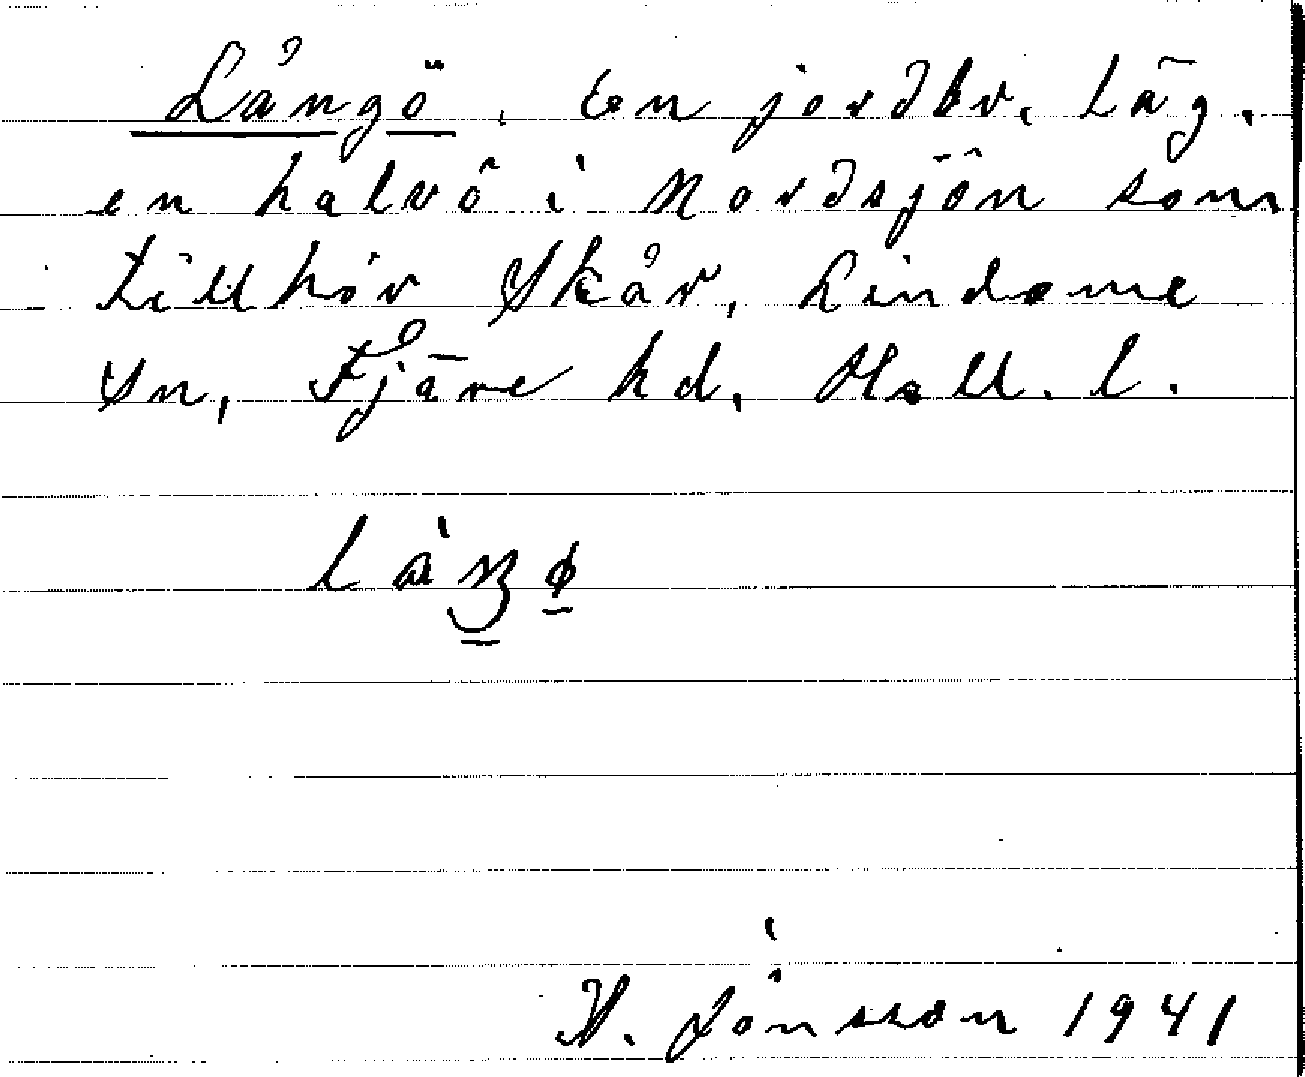 Långö. En jordbr. läg.
en halvö i Nordsjön som
tillhör Skår, Lindome
Sn, Fjäre hd, Hall. l.
H. Jönsson 1941